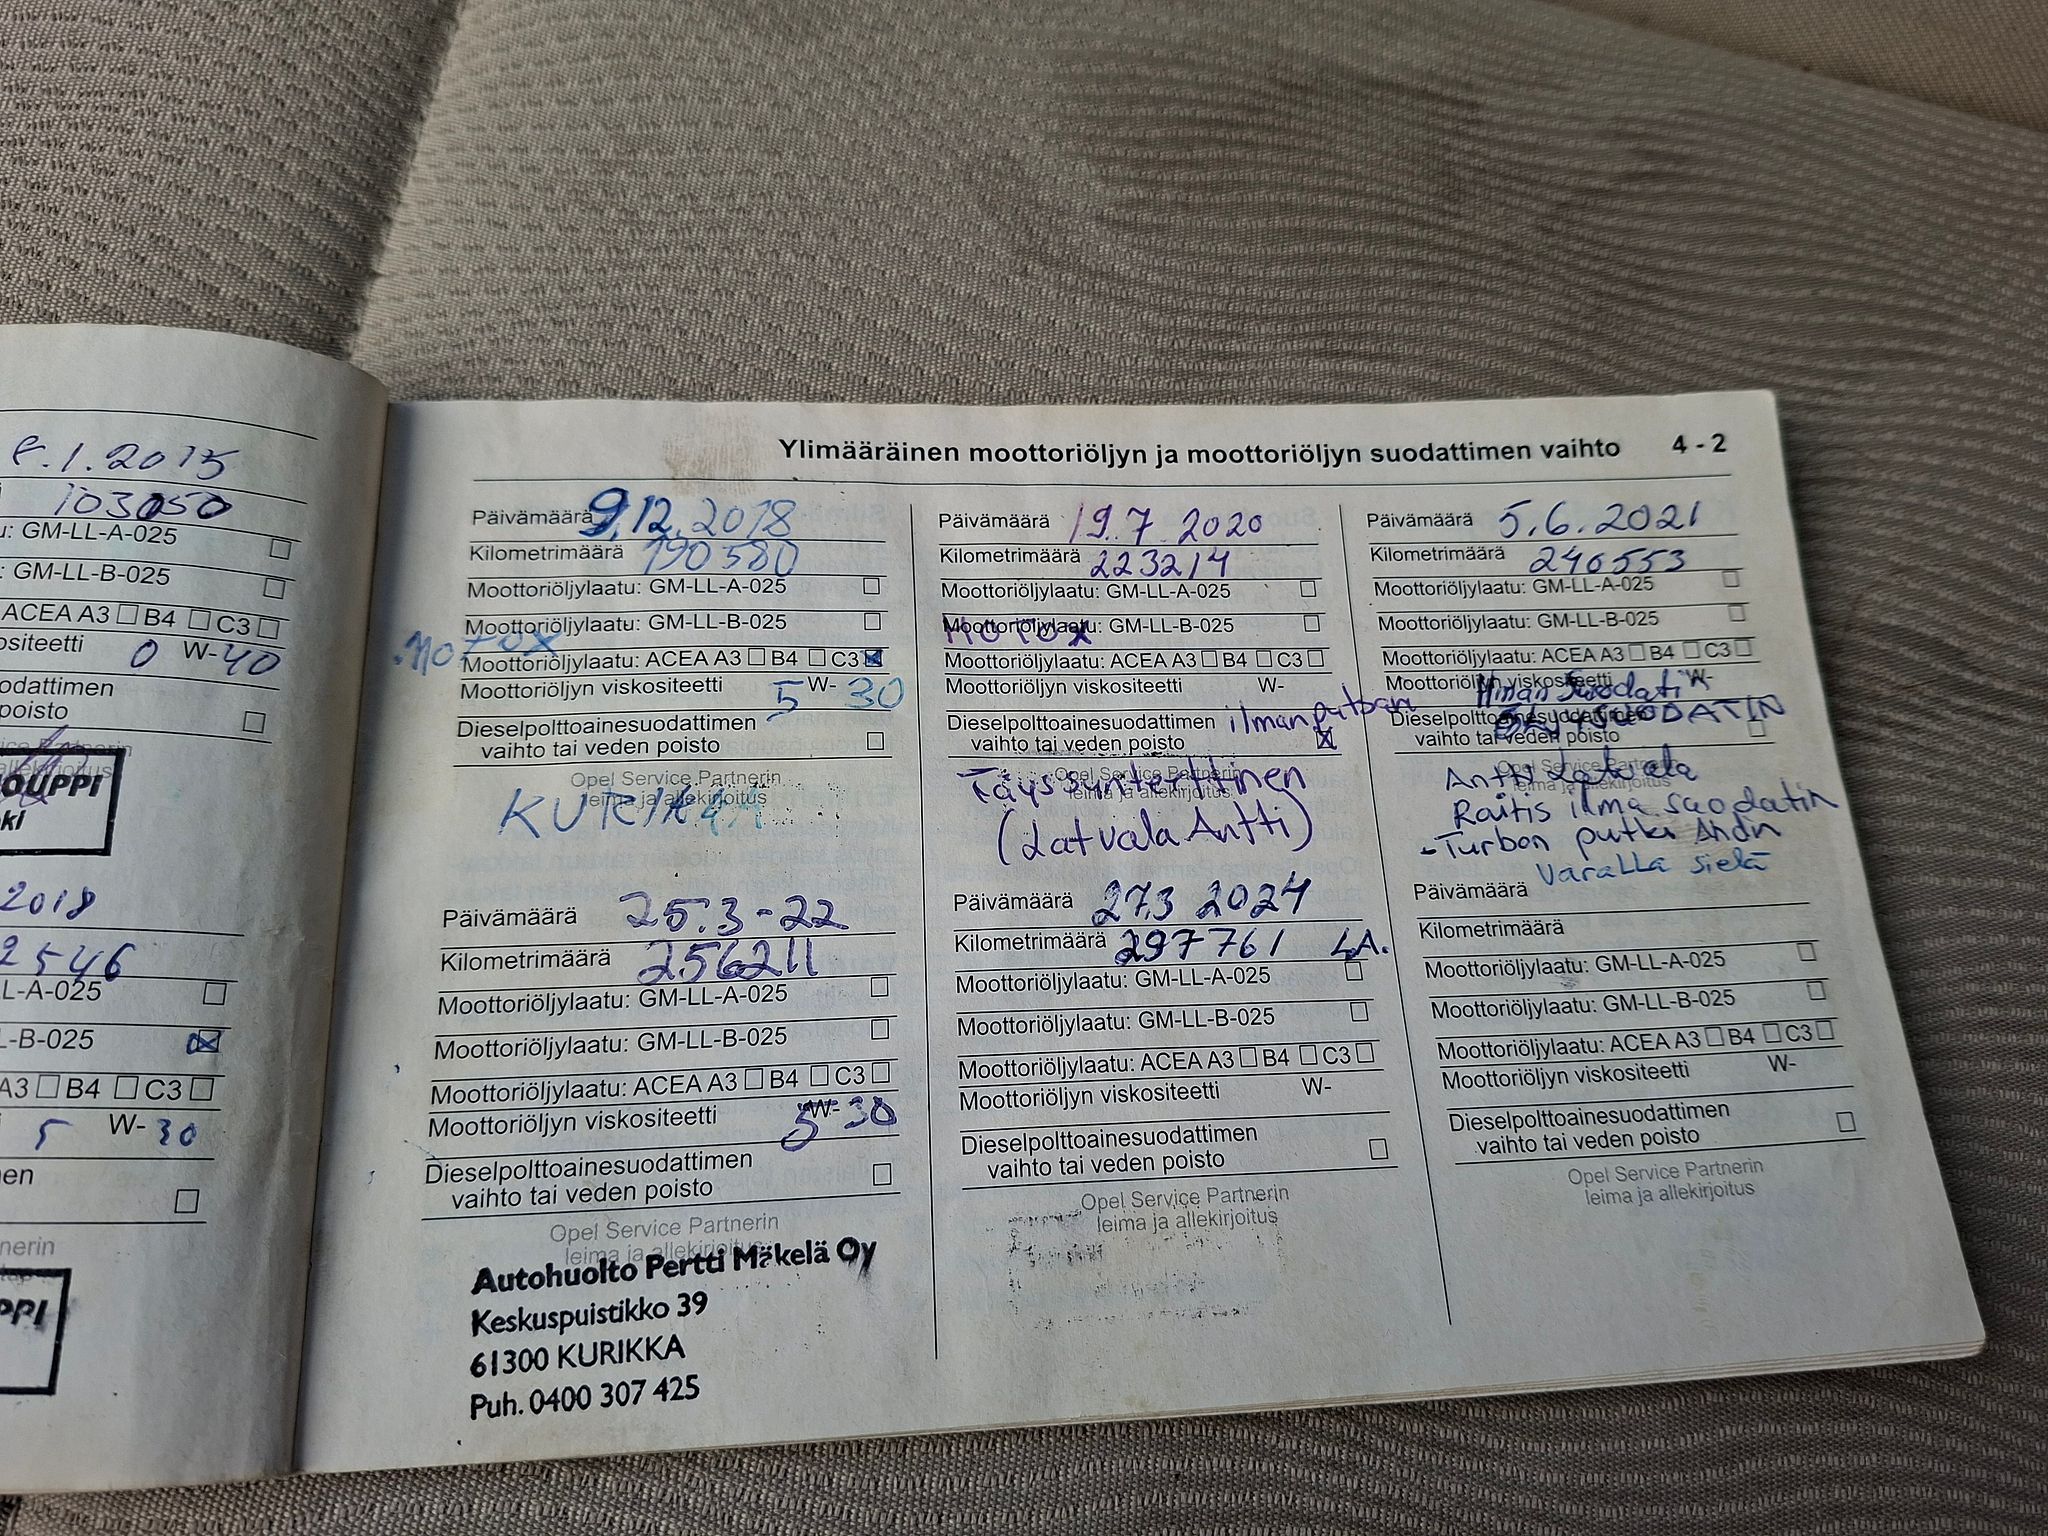 8.1.2015
103050
: GM-LL-A-025
: GM-LL-B-025
ACEA A3 B4 C3
ositeetti 0 W-40
odattimen
poisto
OUPPI
ki
2018
2546
L-A-025
L-B-025
A3 B4 C3
5 W-30
en
nerin
PPI
Ylimääräinen moottoriöljyn ja moottoriöljyn suodattimen vaihto 4 - 2
Päivämäärä 9.12.2018
Kilometrimäärä 190580
Moottoriöljylaatu: GM-LL-A-025
Moottoriöljylaatu: GM-LL-B-025
MOTOX
Moottoriöljylaatu: ACEA A3 B4 C3
Moottoriöljyn viskositeetti 5 W- 30
Dieselpolttoainesuodattimen
vaihto tai veden poisto
Opel Service Partnerin
leima ja allekirjoitus
KURIKKA
Päivämäärä 19.7.2020
Kilometrimäärä 223214
Moottoriöljylaatu: GM-LL-A-025
Moottoriöljylaatu: GM-LL-B-025
MOTOX
Moottoriöljylaatu: ACEA A3 B4 C3
Moottoriöljyn viskositeetti W-
Dieselpolttoainesuodattimen ilman
vaihto tai veden poisto
Opel Service Partnerin
leima ja allekirjoitus
Täyssynterttinen
(Latvala Antti)
Päivämäärä 5.6.2021
Kilometrimäärä 240553
Moottoriöljylaatu: GM-LL-A-025
Moottoriöljylaatu: GM-LL-B-025
Moottoriöljylaatu: ACEA A3 B4 C3
Moottoriöljyn viskositeetti W-
Ilman Suodatin
Dieselpolttoainesuodattimen
SUODATIN
vaihto tai veden poisto
Opel Service Partnerin
leima ja allekirjoitus
Antti Latvala
Raitis ilma suodatin
- Turbon putki Ahdin
Varalla sielä
Päivämäärä 25.3-22
Kilometrimäärä 256211
Moottoriöljylaatu: GM-LL-A-025
Moottoriöljylaatu: GM-LL-B-025
Moottoriöljylaatu: ACEA A3 B4 C3
Moottoriöljyn viskositeetti 5 W- 30
Dieselpolttoainesuodattimen
vaihto tai veden poisto
Opel Service Partnerin
leima ja allekirjoitus
Autohuolto Pertti Mäkelä Oy
Keskuspuistikko 39
61300 KURIKKA
Puh. 0400 307 425
Päivämäärä 27.3 2024
Kilometrimäärä 297761 LA.
Moottoriöljylaatu: GM-LL-A-025
Moottoriöljylaatu: GM-LL-B-025
Moottoriöljylaatu: ACEA A3 B4 C3
Moottoriöljyn viskositeetti W-
Dieselpolttoainesuodattimen
vaihto tai veden poisto
Opel Service Partnerin
leima ja allekirjoitus
Päivämäärä
Kilometrimäärä
Moottoriöljylaatu: GM-LL-A-025
Moottoriöljylaatu: GM-LL-B-025
Moottoriöljylaatu: ACEA A3 B4 C3
Moottoriöljyn viskositeetti W-
Dieselpolttoainesuodattimen
vaihto tai veden poisto
Opel Service Partnerin
leima ja allekirjoitus